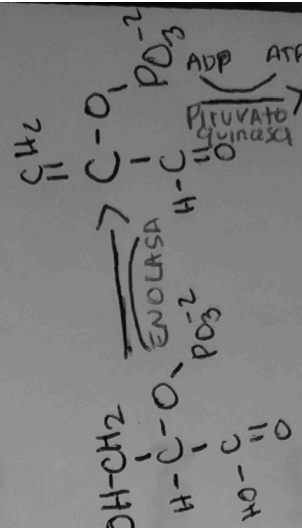 OH-CH2
H-C-O-PO3-2
HO-C=O
ENOLASA
CH2
C-O-PO3-2
H-C=O
ADP ATP
PIRUVATO
quinasa